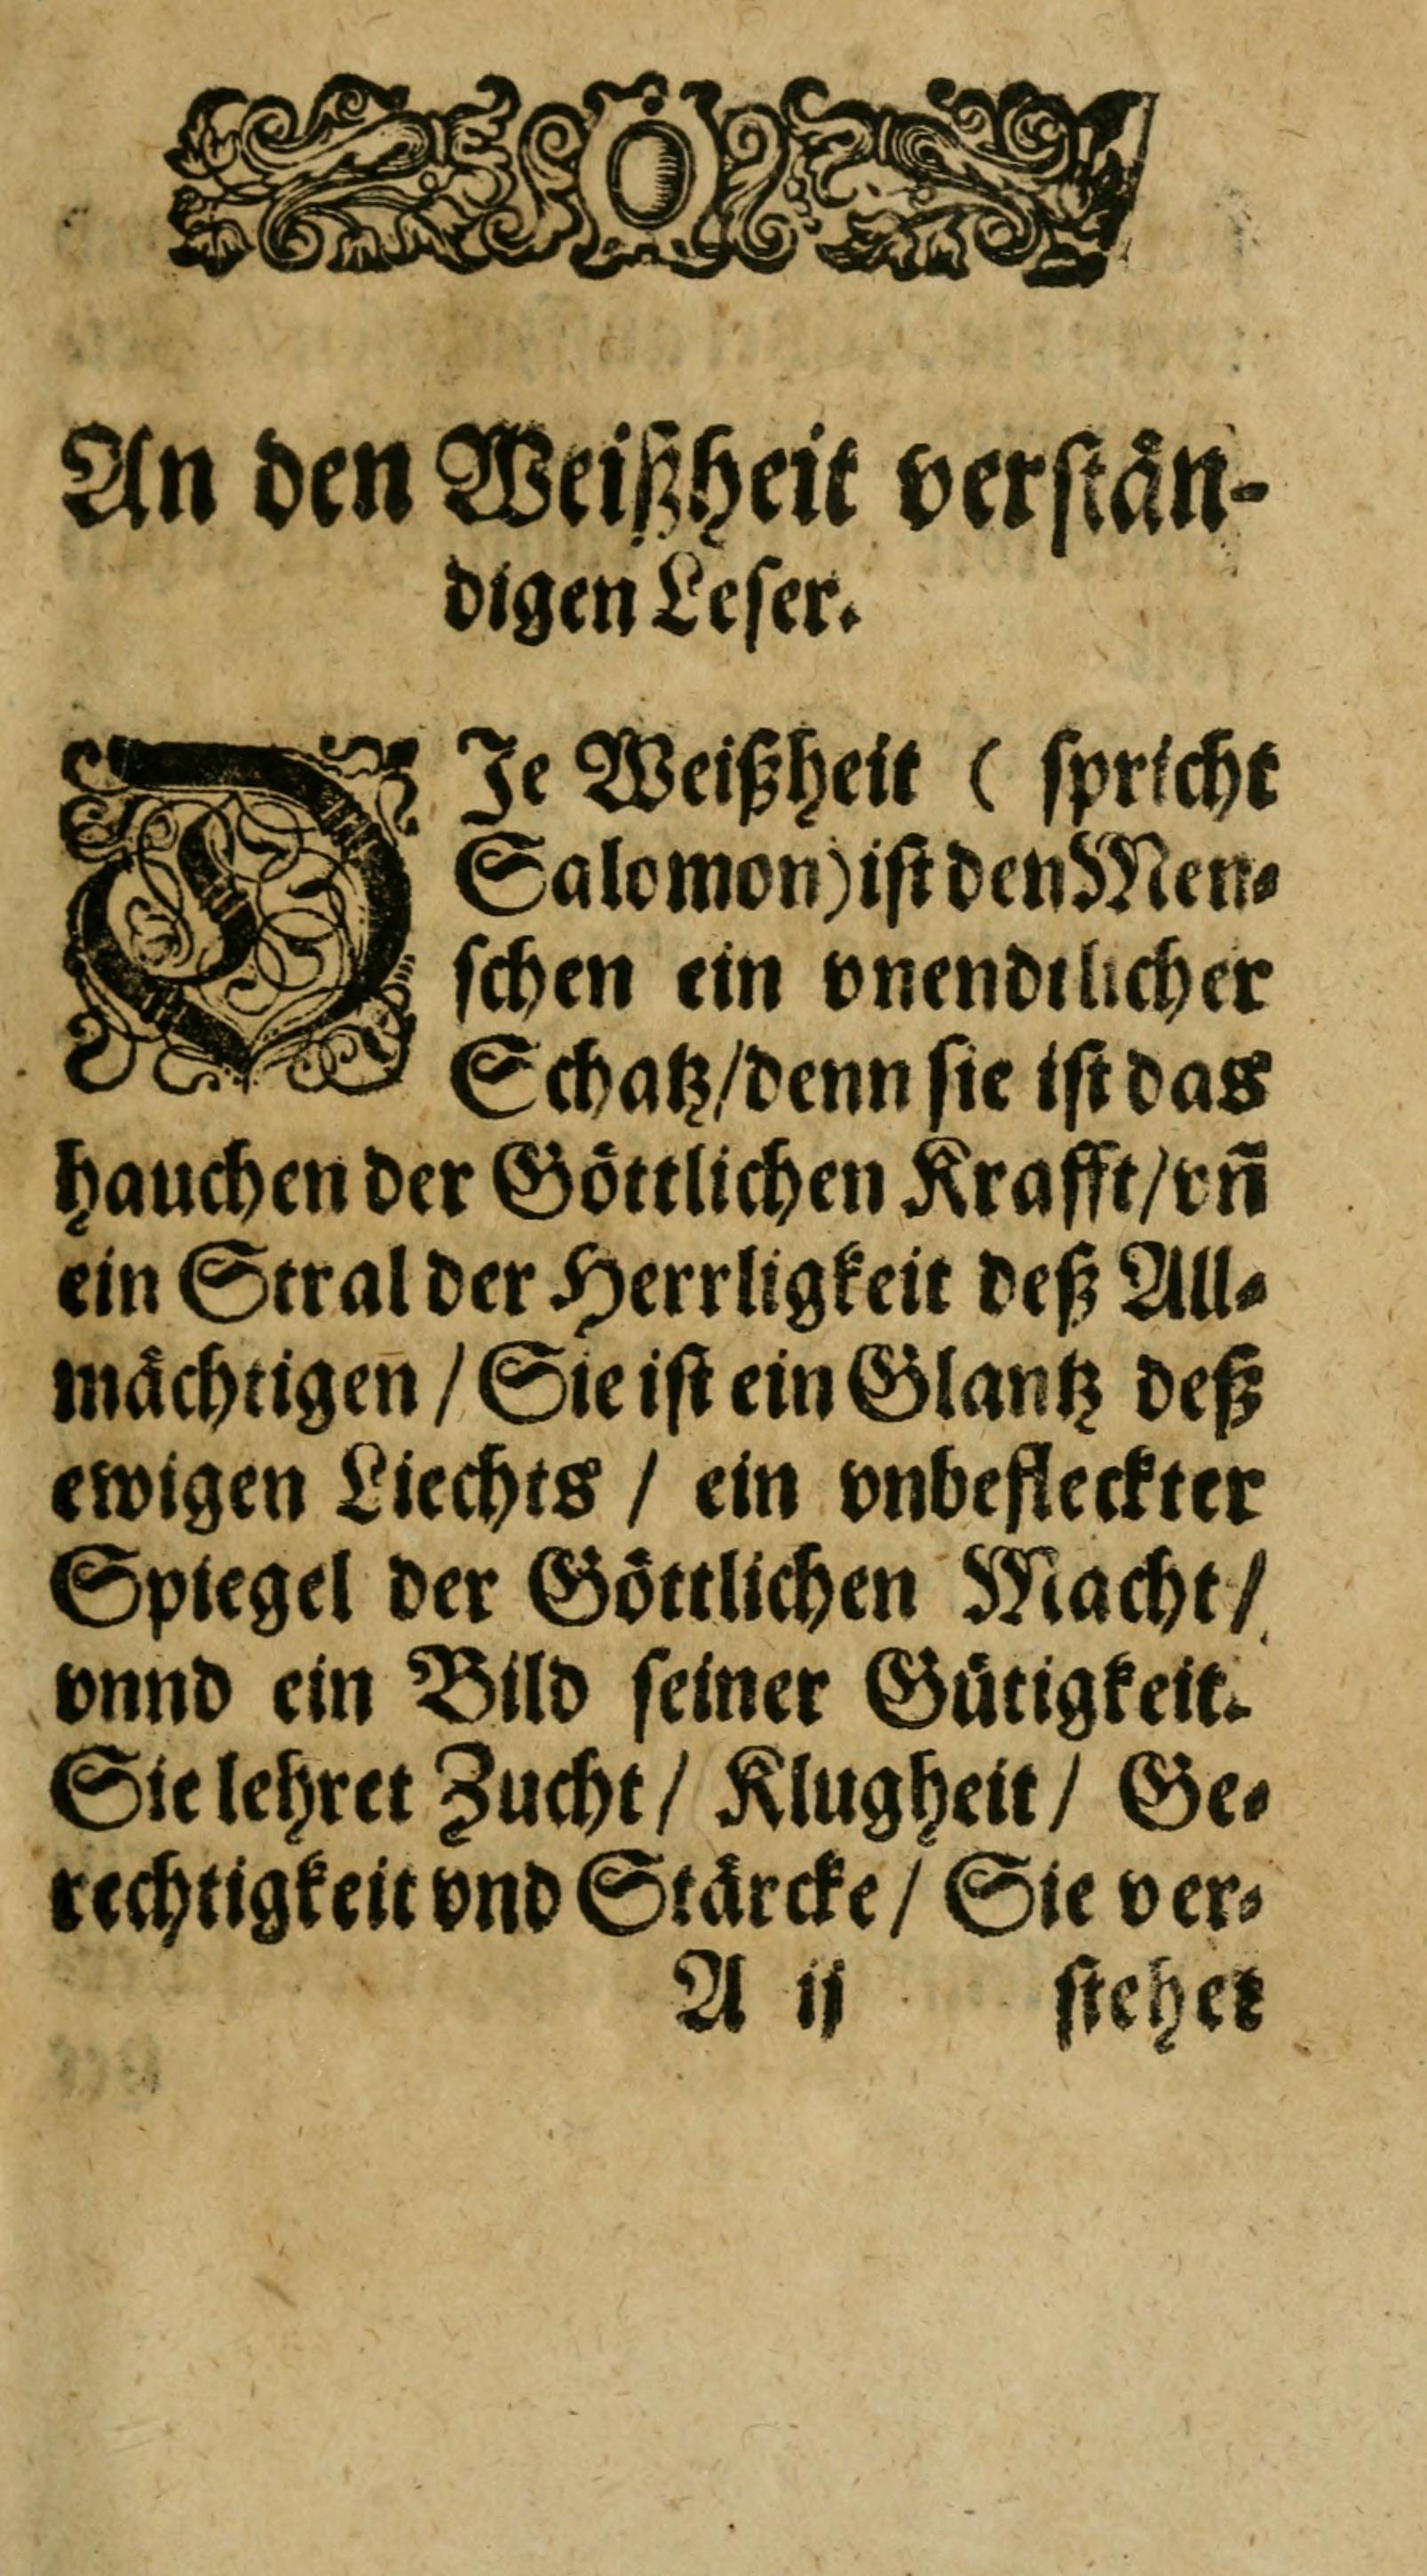 An den Weißheit verstän-
digen Leser.
DJe Weißheit ( spricht
Salomon) ist den Men-
schen ein vnendtlicher
Schatz/ denn sie ist das
hauchen der Göttlichen Krafft/ vñ
ein Stral der Herrligkeit deß All-
mächtigen / Sie ist ein Glantz deß
ewigen Liechts / ein vnbefleckter
Spiegel der Göttlichen Macht /
vnnd ein Bild seiner Gütigkeit.
Sie lehret Zucht / Klugheit / Ge-
rechtigkeit vnd Stärcke / Sie ver-
A ij stehet